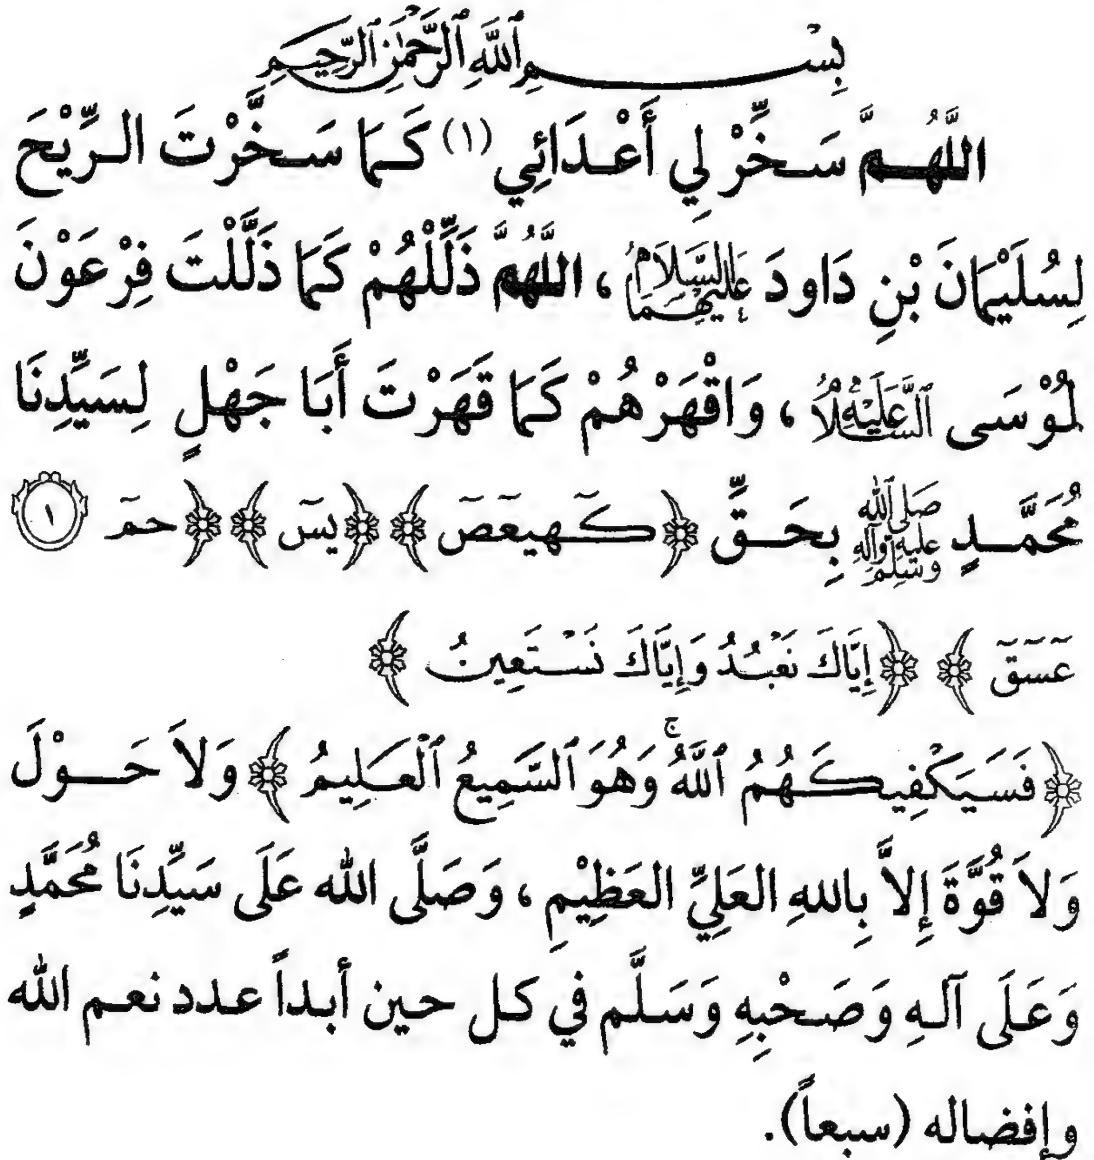 بِسْمِ ٱللَّهِ ٱلرَّحْمَٰنِ ٱلرَّحِيمِ
اللَّهُمَّ سَخِّرْ لِي أَعْدَائِي (١) كَمَا سَخَّرْتَ الرِّيْحَ
لِسُلَيْمَانَ بْنِ دَاودَ عَلَيْهِمَا السَّلَامُ ، اللَّهُمَّ ذَلِّلْهُمْ كَمَا ذَلَّلْتَ فِرْعَوْنَ
لِمُوْسَى عَلَيْهِ السَّلَامُ ، وَاقْهَرْهُمْ كَمَا قَهَرْتَ أَبَا جَهْلٍ لِسَيِّدِنَا
مُحَمَّدٍ صلى الله عليه وآله وسلم بِحَقِّ ﴿كٓهيعٓصٓ﴾ ﴿يسٓ﴾ ﴿حمٓ ١
عٓسٓقٓ﴾ ﴿إِيَّاكَ نَعْبُدُ وَإِيَّاكَ نَسْتَعِينُ﴾
﴿فَسَيَكْفِيكَهُمُ ٱللَّهُ ۚ وَهُوَ ٱلسَّمِيعُ ٱلْعَلِيمُ﴾ وَلاَ حَوْلَ
وَلاَ قُوَّةَ إِلاَّ بِاللهِ العَلِيِّ العَظِيْمِ ، وَصَلَّى الله عَلَى سَيِّدِنَا مُحَمَّدٍ
وَعَلَى آلِهِ وَصَحْبِهِ وَسَلَّم في كل حين أبداً عدد نعم الله
وإفضاله (سبعاً).